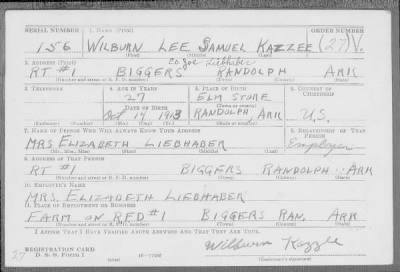 SERIAL NUMBER 1. NAME (Print) ORDER NUMBER
156 WILBURN LEE SAMUEL KAZZEE (27) V.
(First) (Middle) (Last)
2. ADDRESS (Print) Co Joe Liebhaber
RT #1 BIGGERS RANDOLPH ARK
(Number and street or R. F. D. number) (Town) (County) (State)
3. TELEPHONE 4. AGE IN YEARS 5. PLACE OF BIRTH 6. COUNTRY OF CITIZENSHIP
27 ELM STORE
DATE OF BIRTH (Town or county)
Oct 14 1913 RANDOLPH ARK U.S.
(Exchange) (Number) (Mo.) (Day) (Yr.) (State or country)
7. NAME OF PERSON WHO WILL ALWAYS KNOW YOUR ADDRESS 8. RELATIONSHIP OF THAT PERSON
MRS ELIZABETH LIEBHABER Employer
(Mr., Mrs., Miss) (First) (Middle) (Last)
9. ADDRESS OF THAT PERSON
RT #1 BIGGERS RANDOLPH ARK
(Number and street or R. F. D. number) (Town) (County) (State)
10. EMPLOYER'S NAME
MRS. ELIZABETH LIEBHABER
11. PLACE OF EMPLOYMENT OR BUSINESS
FARM ON RFD #1 BIGGERS RAN. ARK
(Number and street or R. F. D. number) (Town) (County) (State)
I AFFIRM THAT I HAVE VERIFIED ABOVE ANSWERS AND THAT THEY ARE TRUE.
REGISTRATION CARD
D. S. S. Form 1 Wilburn Kazzee
27 (Registrant's signature)